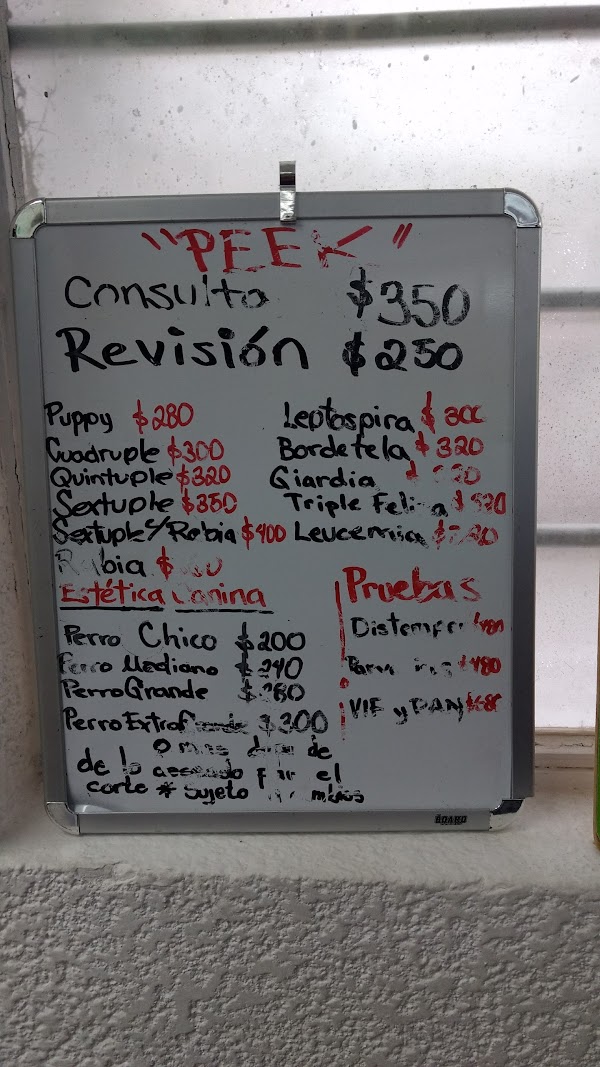 "PEEK"
Consulta $350
Revisión $250
Puppy $280
Cuadruple $300
Quintuple $320
Sextuple $350
Sextuple c/Rabia $400
Rabia $
Leptospira $300
Bordetela $320
Giardia
Triple Felina
Leucemia
Estética Canina
Perro Chico $200
Perro Mediano $240
Perro Grande $280
Perro Extra Grande $300
o mas
de lo por el
corte * Sujeto
Pruebas
Distemper $480
$480
VIF y
BOARD